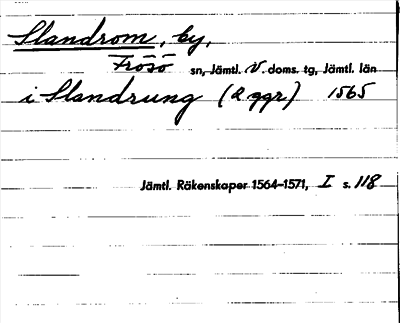 Slandrom, by,
Frösö sn, Jämtl. V. doms. tg, Jämtl. län
i Slandrung (2 ggr) 1565
Jämtl. Räkenskaper 1564–1571, I s. 118